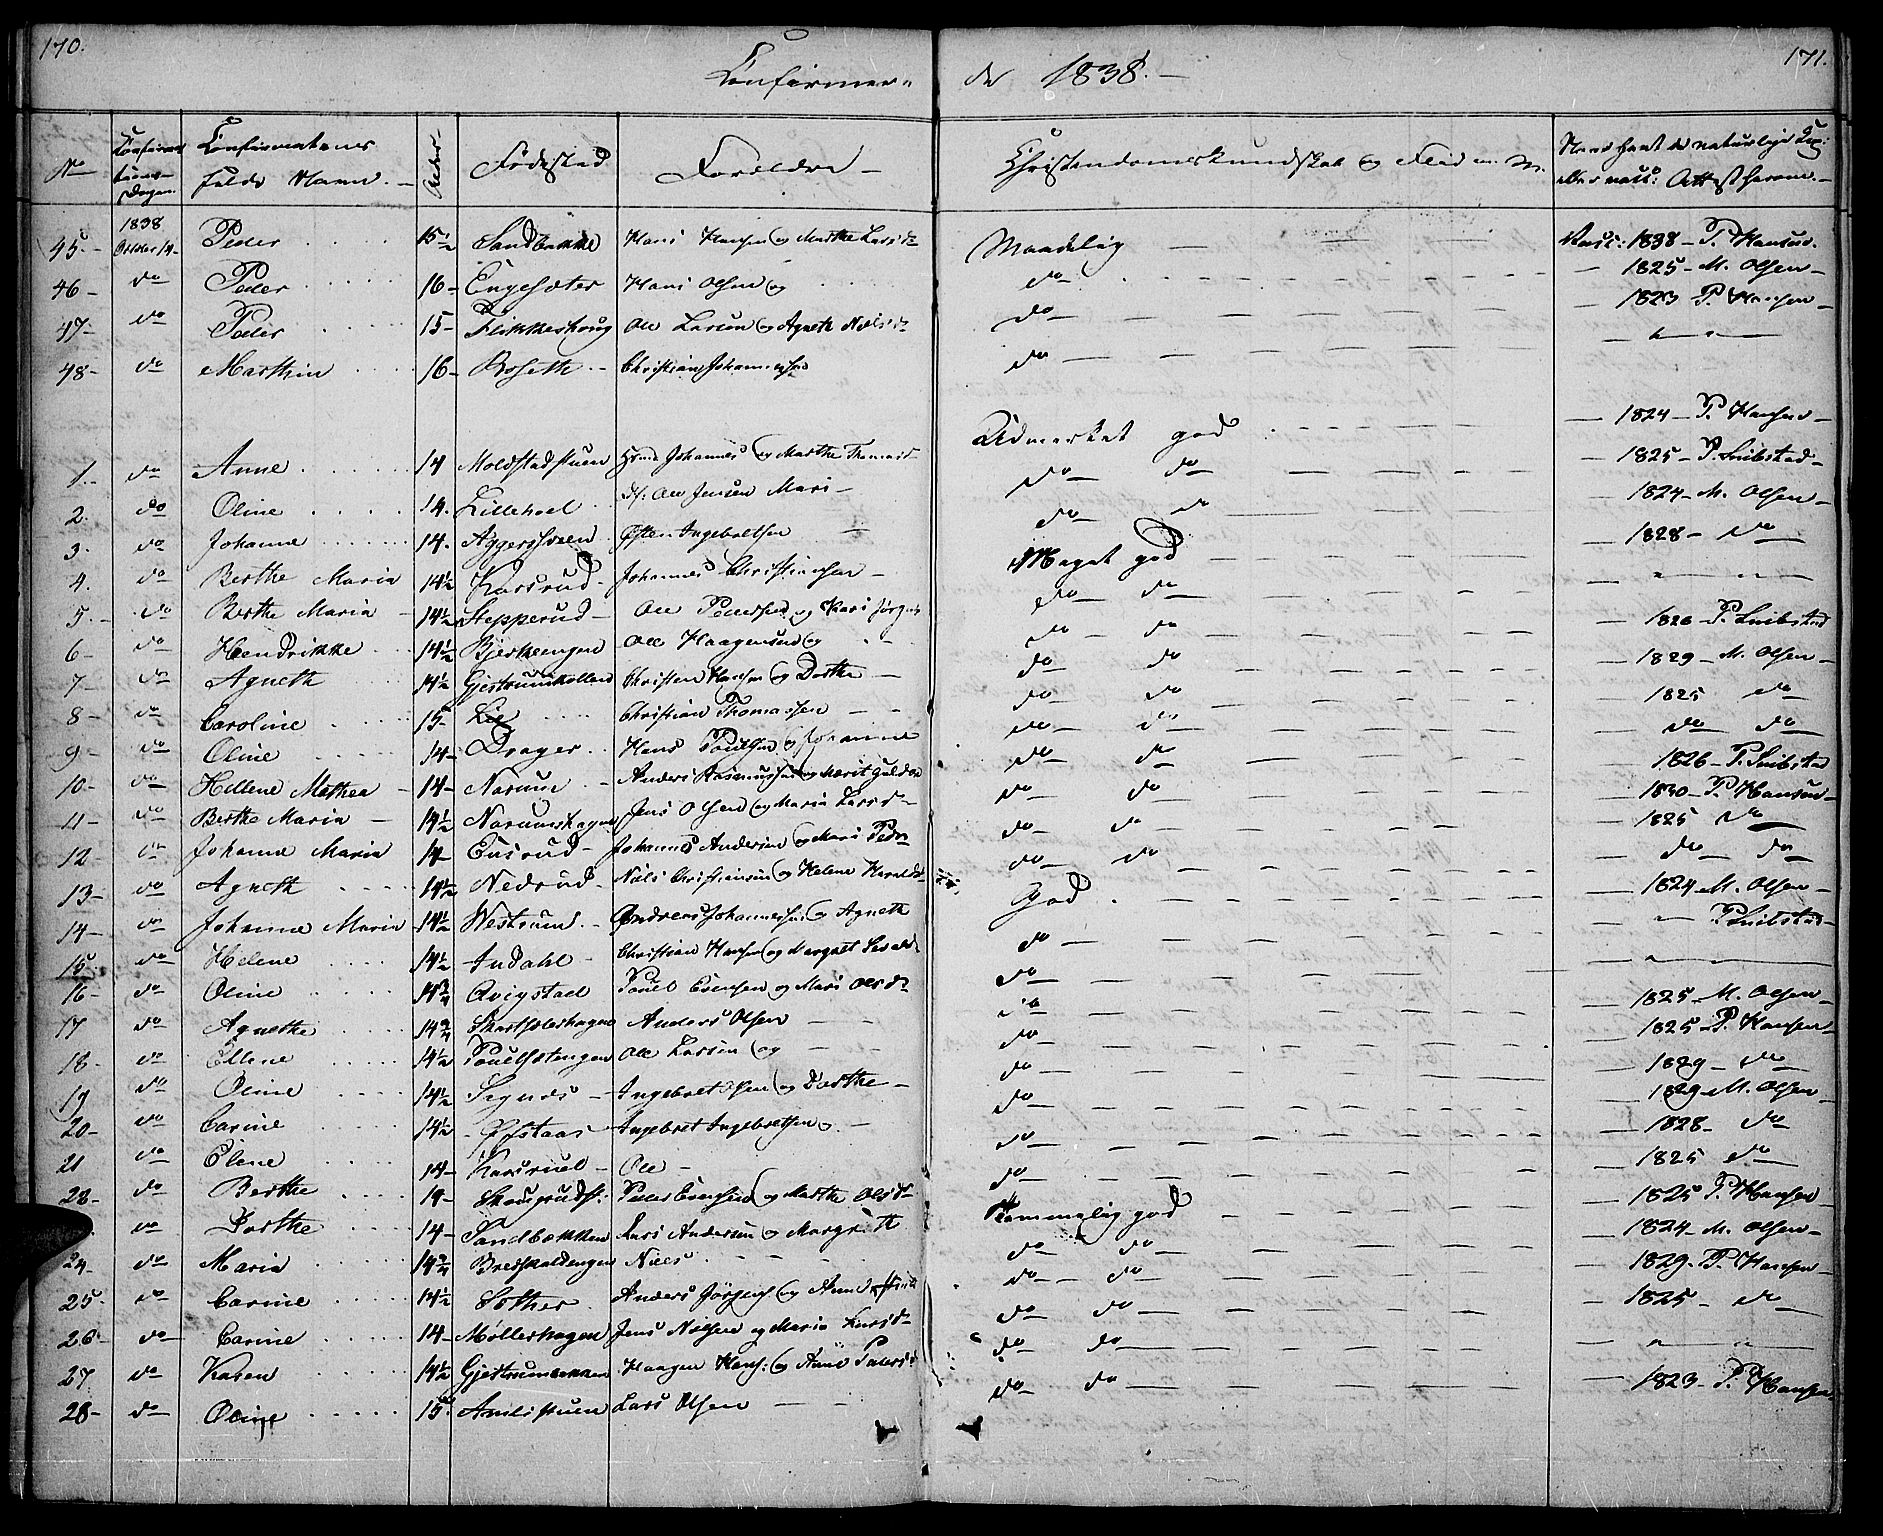 170.
171.
Confirmer-
de 1838. -
No
Confirma-
tions-
Dagen.
Confirmatens
fulde Navn. -
Alder
Fødested
Forældre -
Christendomskundskab og Flid
Naar havt de naturlige Kop:
eller vacc: Attest herom. -
45 - 1838 October 14 - Peder 15½ Sandbakke Hans Hansen og Marthe Larsd. Maadelig Vacc: 1838 - P. Hansen.
46 - do Peder 16 - Engesæter Hans Olsen og do - 1825 - M. Olsen -
47 - do Peder 15 - Flikkeshoug Ole Larsen og Agnethe Nielsd. do - 1823 P. Hansen -
48 - do Marthin 16 - Roseth - Christian Johannesen do
1. do Anne 14 Moldstadstuen Johannes og Marthe Thomasd Udmerket god - 1824 - P. Hansen -
2. do Oline 14. Lillehoel Ole Jensen Mari - do do - 1825 -
3. do Johanne 14. Aggershveen Østen Ingebretsen do do - 1824 - M. Olsen -
4. do Berthe Maria 14½ Karsrud - Johannes Christiansen - Meget god - 1828 - do
5. - do Berthe Maria - 14½ Stepperud - Ole Pedersen og Kari Jørgens do do
6 - do Hendrikke 14½ Bjerkeengen Ole Haagensen og do do - 1826 -
7 - do Agneth 14½ Gjestrumkolland Christen Hansen og Dorthe - do do - 1829 - M. Olsen -
8 - do Caroline 15 Lie Christian Thomassen - do do 1825 do
9 - do Oline 14 - Drager Hans Poulsen og Johanne do do do do
10 - do Hellene Mathea - 14 - Narum - Anders Rasmussen og Marit Guld do do 1826 -
11 - do Berthe Maria - 14½ Narumshagen Jens Olsen og Maria Larsd - do do - 1830 - P. Hansen -
12 - do Johanne Maria 14 Eusrud - Johannes Andersen og Mari Ped do do - 1825 do
13 - do Agneth 14½ Nedrud - Niels Christiansen og Helene Haralds do do do do
14 - do Johanne Maria - 14½ Westrum - Andreas Johannesen og Agneth God - 1824 M. Olsen -
15 - do Helene 14½ Indahl - Christian Hansen og Margret do
16 - do Oline 14¾ Qvigstad Pouel Evensen og Mari Olsd. do
17 do Agnethe 14¾ Anders Olsen - do 1825 M. Olsen -
18 - do Ellene 14½ Pouelsætengen Ole Larsen og do 1825 - P. Hansen -
19 do Oline 14½ Segnæs - Ingebret Olsen og Dorthe - do - 1829 - do
20 - do Carine 14½ - Øfstaas Ingebret Ingebretsen do 1829 M. Olsen
21 do Elene 14 - Karsrud - Ole - do - 1828 - do
28 - do Berthe 14 - Skougrudst: Peder Evensen og Marthe Olsd. do - 1825 do
do Dorthe 14 - Sandbækken Lars Andersen og Margreth Temmelig god - 1825 P. Hansen
24 - do Maria 14¾ Bredskaldengen Niels do do - 1824 - M. Olsen -
25 - do Carine 14½ Sether Anders Jørgens og Anne do do - 1829. P. Hansen -
26 - do Carine 14 - Møllerhagen Jens Nielsen og Maria Larsd. do do - 1825 - do
27 do Karen 14½ Haagen Hans: og Anne do do
28 - do Oline 15 - Lars Olsen - do do - 1823 - P. Hansen